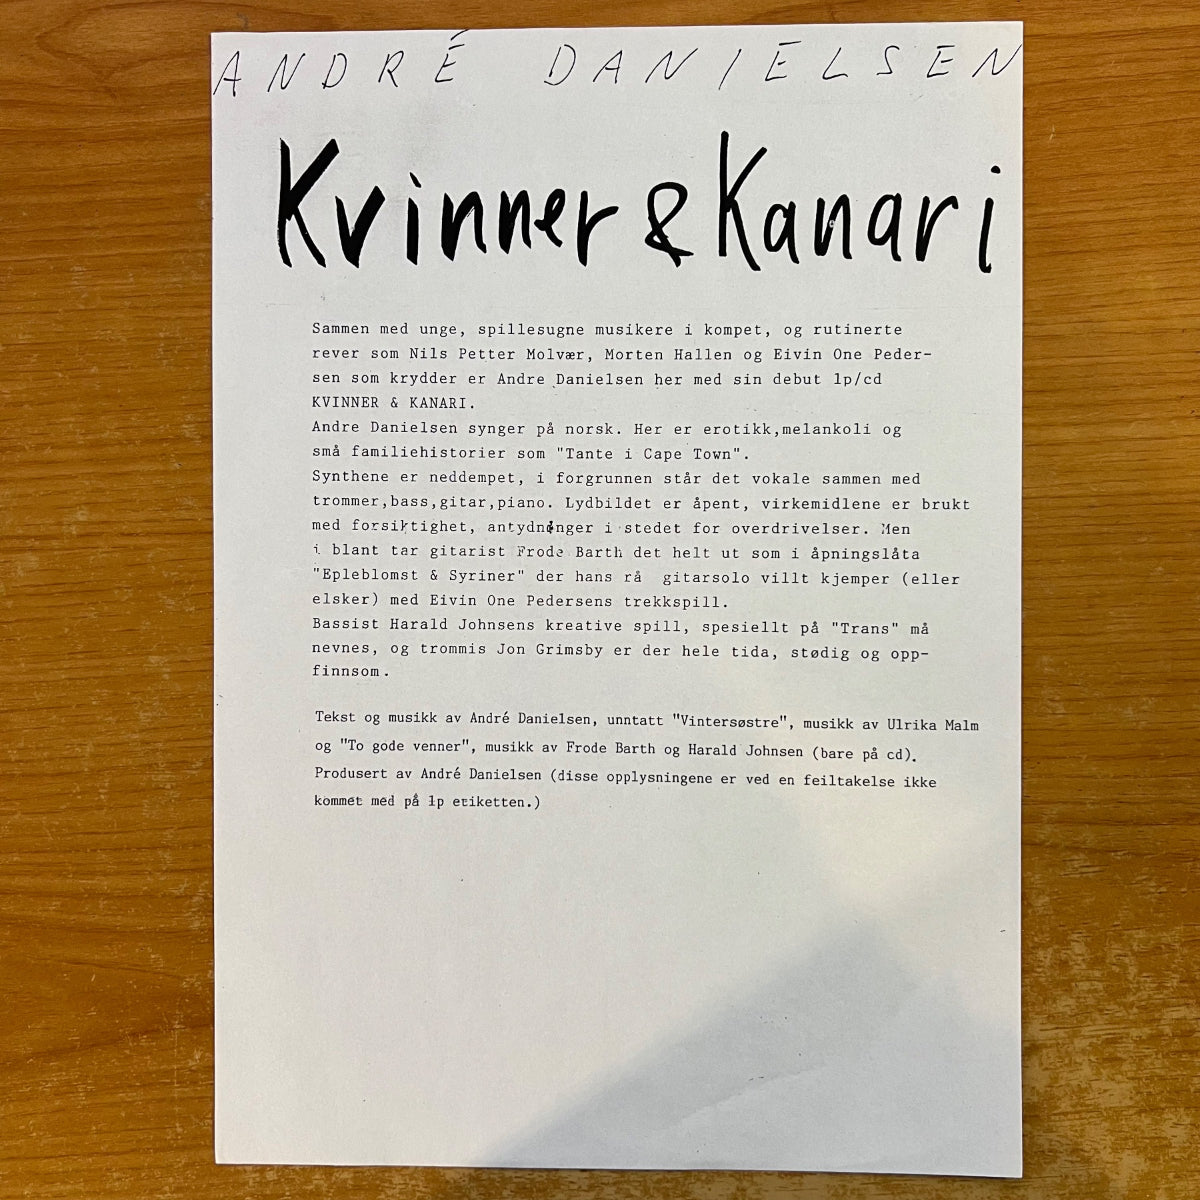 ANDRÉ DANIELSEN
Kvinner & Kanari
Sammen med unge, spillesugne musikere i kompet, og rutinerte
rever som Nils Petter Molvær, Morten Hallen og Eivin One Peder-
sen som krydder er Andre Danielsen her med sin debut lp/cd
KVINNER & KANARI.
Andre Danielsen synger på norsk. Her er erotikk,melankoli og
små familiehistorier som "Tante i Cape Town".
Synthene er neddempet, i forgrunnen står det vokale sammen med
trommer,bass,gitar,piano. Lydbildet er åpent, virkemidlene er brukt
med forsiktighet, antydninger i stedet for overdrivelser. Men
i blant tar gitarist Frode Barth det helt ut som i åpningslåta
"Epleblomst & Syriner" der hans rå gitarsolo villt kjemper (eller
elsker) med Eivin One Pedersens trekkspill.
Bassist Harald Johnsens kreative spill, spesiellt på "Trans" må
nevnes, og trommis Jon Grimsby er der hele tida, stødig og opp-
finnsom.
Tekst og musikk av André Danielsen, unntatt "Vintersøstre", musikk av Ulrika Malm
og "To gode venner", musikk av Frode Barth og Harald Johnsen (bare på cd).
Produsert av André Danielsen (disse opplysningene er ved en feiltakelse ikke
kommet med på lp etiketten.)